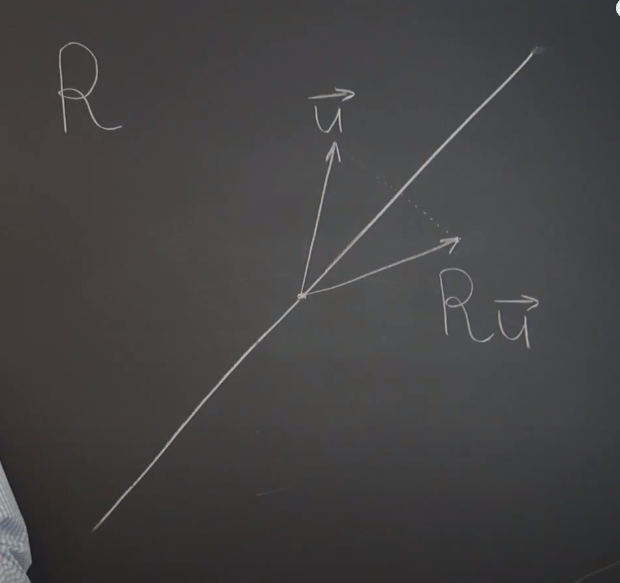 R
u⃗
Ru⃗